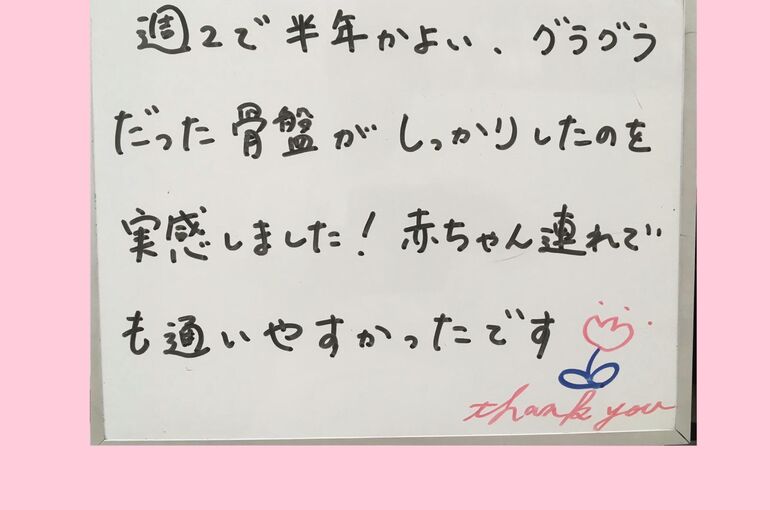 週2で半年かよい、グラグラ
だった骨盤がしっかりしたのを
実感しました！赤ちゃん連れで
も通いやすかったです
thank you